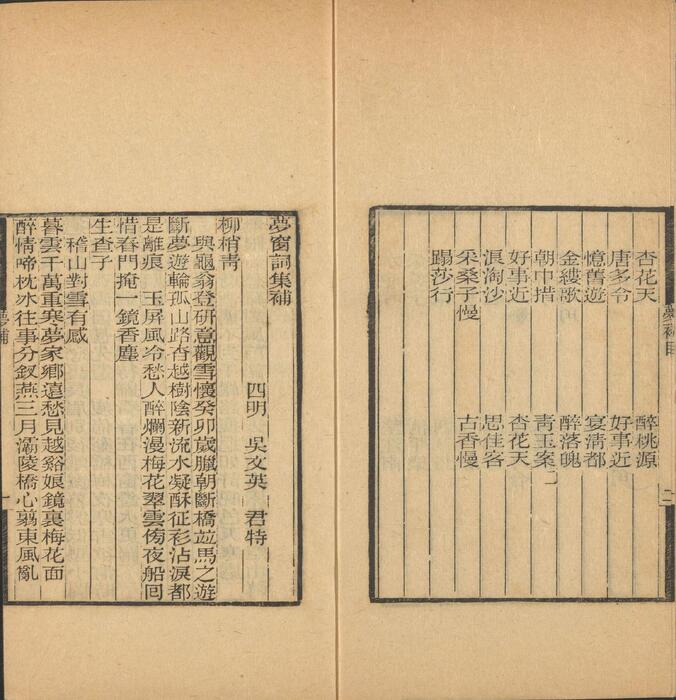 杏花天 醉桃源
唐多令 好事近
憶舊遊 宴淸都
金縷歌 醉落魄
朝中措 靑玉案二
好事近 杏花天
浪淘沙 思佳客
采桑子慢 古香慢
蹋莎行
夢窗詞集補
四明 吳文英 君特
柳梢靑
與龜翁登研意觀雪懷癸卯歲臘朝斷橋竝馬之遊
斷夢遊輪孤山路杳越樹陰新流水凝酥征衫沾淚都
是離痕 玉屛風冷愁人醉爛漫梅花翠雲傍夜船囘
惜春門掩一鏡香塵
生查子
稽山對雪有感
暮雲千萬重寒夢家鄉遠愁見越谿娘鏡裏梅花面
醉情啼枕冰往事分釵燕三月灞陵橋心翦東風亂